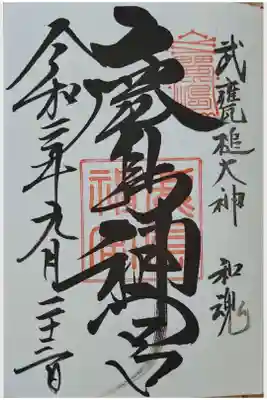 武甕槌大神 和魂
鹿島神宮
令和二年九月二十二日